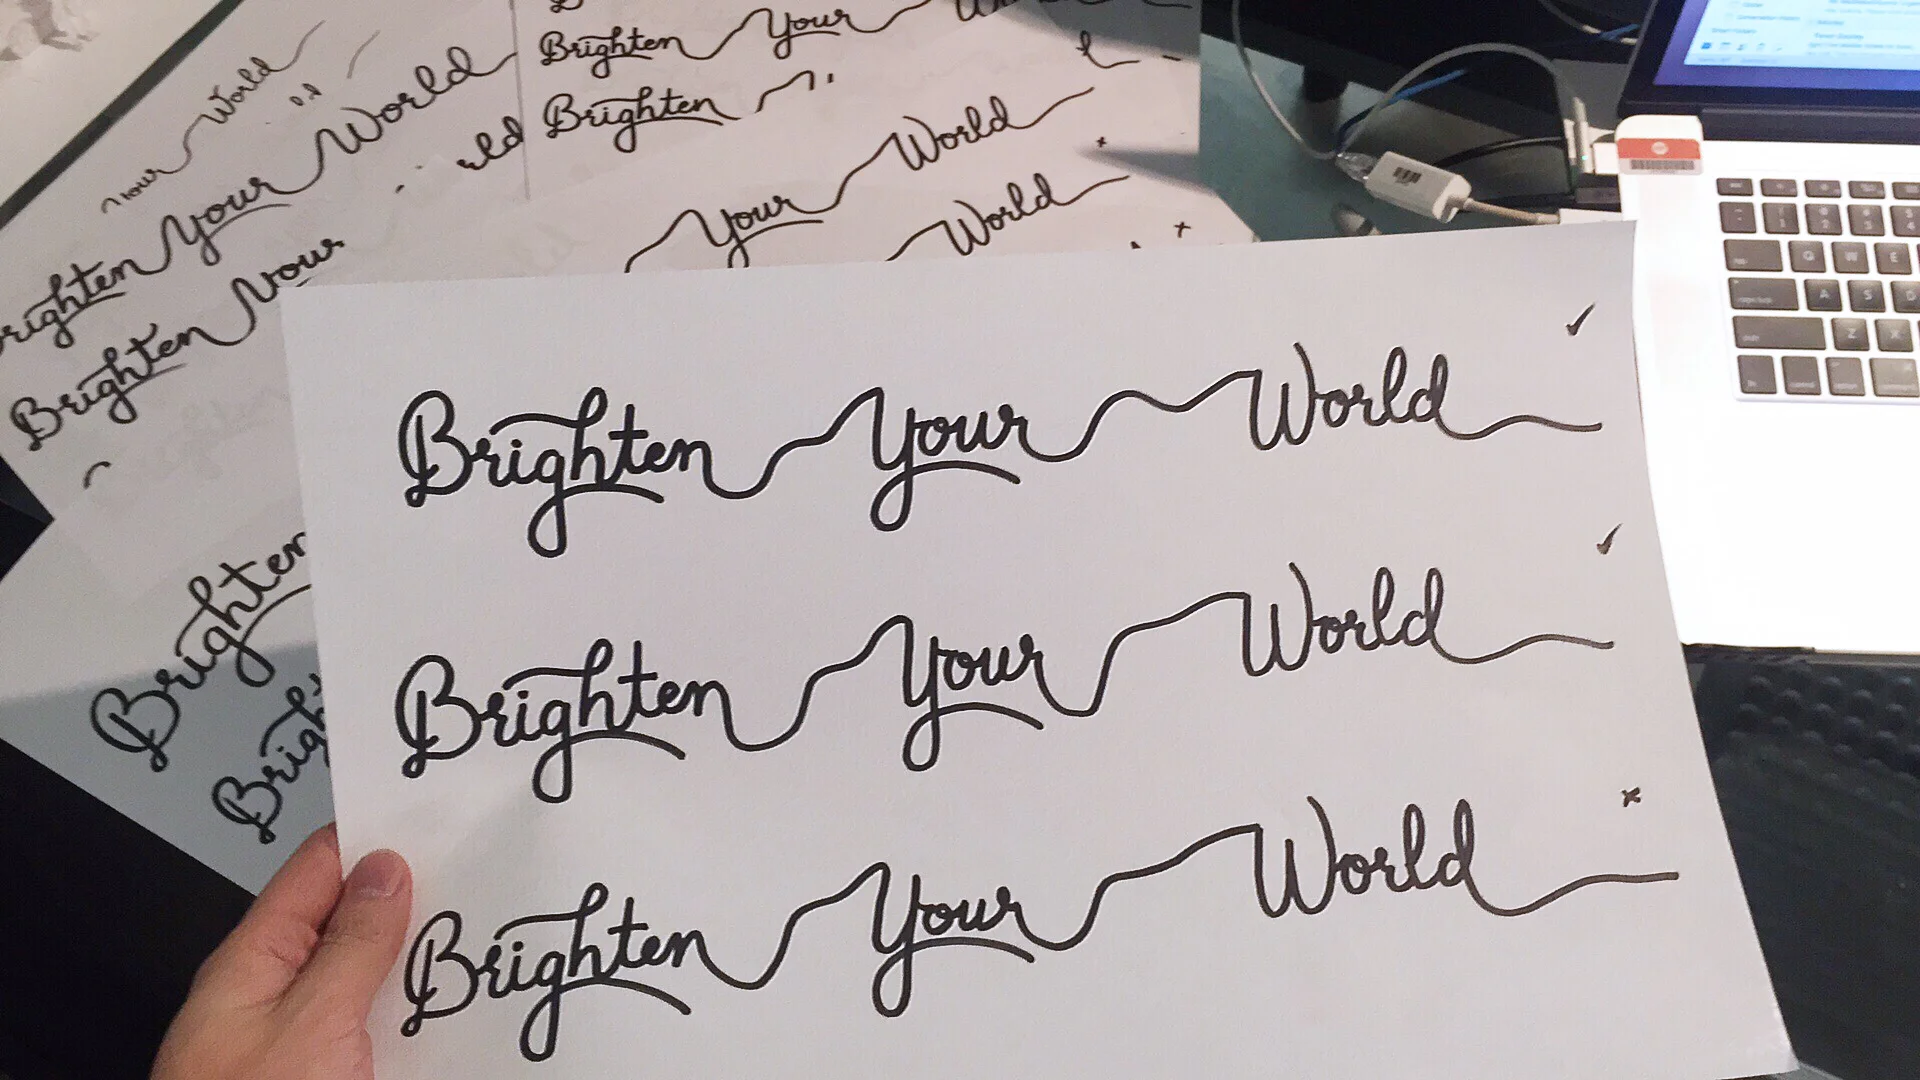 World
Your World
Brighten Your World
Brighten Your
Brighten Your
Brighten
Your World
World
Brighten
Brighten Your World
Brighten Your World
Brighten Your World